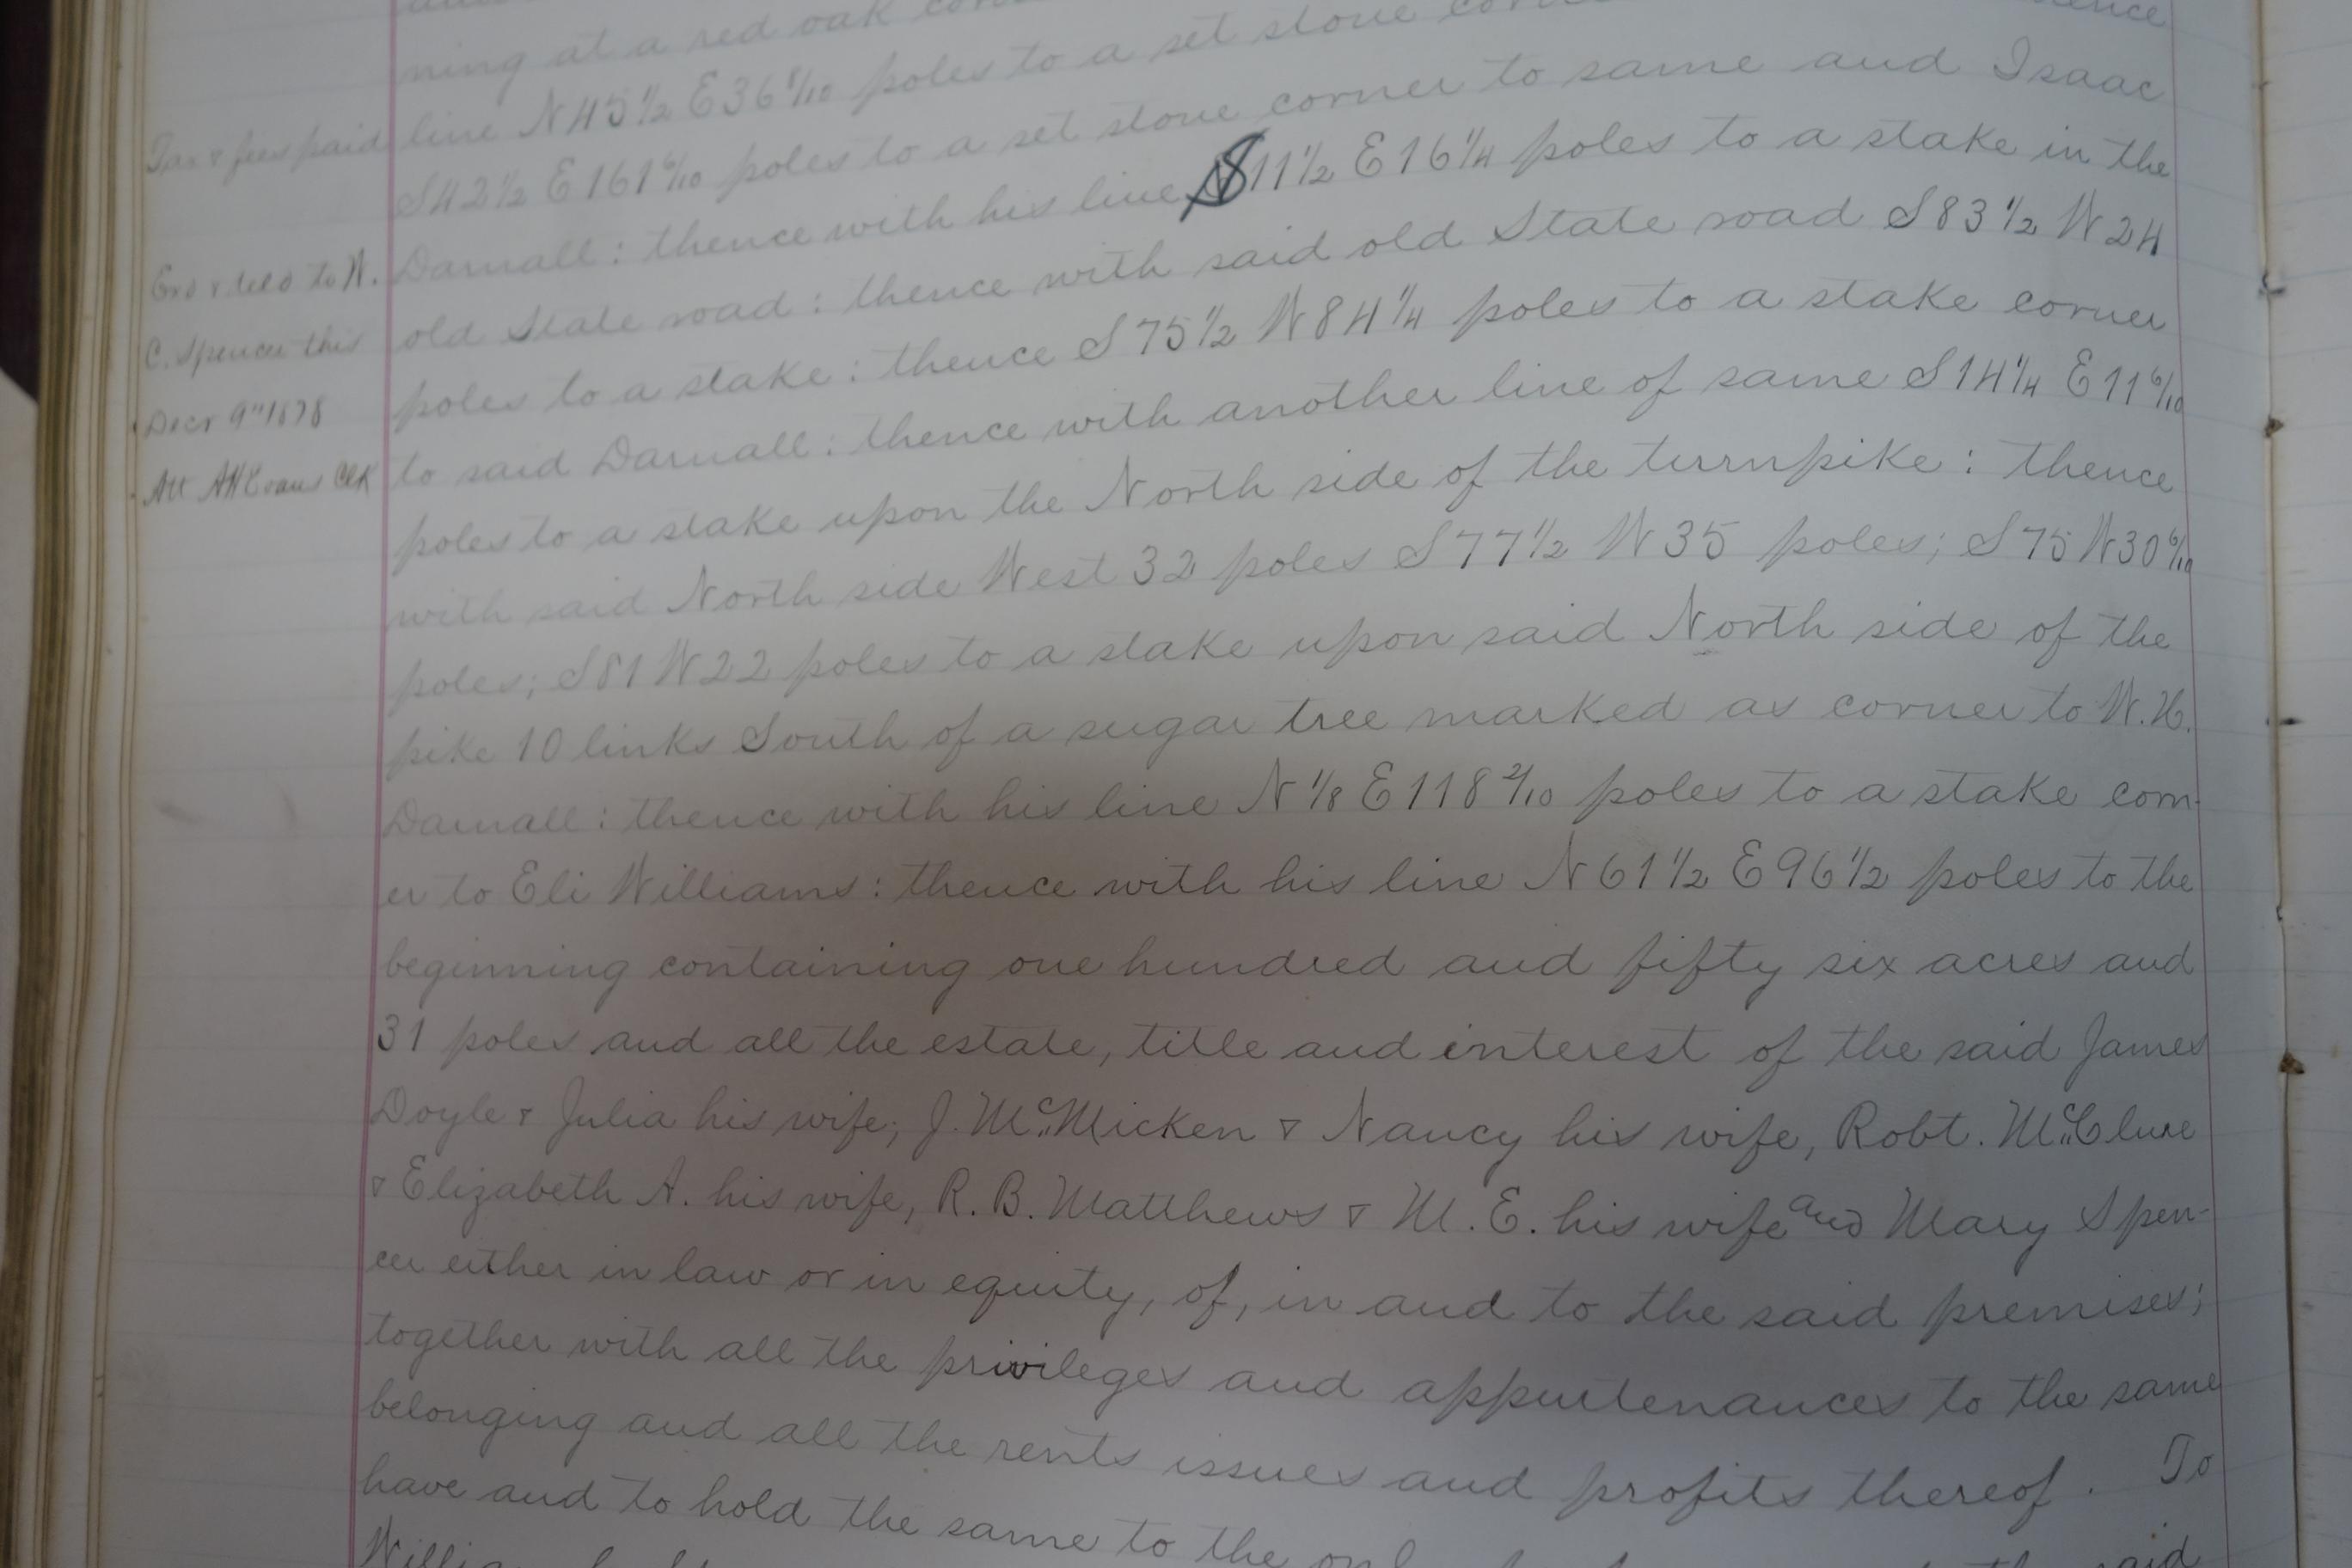 ning at a red oak
line N 45 1/2 E 36 8/10 poles to a set stone
S 42 1/2 E 161 6/10 poles to a set stone corner to same and Isaac
Darnall : thence with his line S 11 1/2 E 16 1/4 poles to a stake in the
old State road : thence with said old State road S 83 1/2 W 24
poles to a stake : thence S 75 1/2 W 84 1/4 poles to a stake corner
to said Darnall : thence with another line of same S 14 1/4 E 11 6/10
poles to a stake upon the North side of the turnpike : thence
with said North side West 32 poles S 77 1/2 W 35 poles; S 75 W 30 6/10
poles; S 81 W 22 poles to a stake upon said North side of the
pike 10 links South of a sugar tree marked as corner to W. H.
Darnall : thence with his line N 1/8 E 118 2/10 poles to a stake corn-
er to Eli Williams : thence with his line N 61 1/2 E 96 1/2 poles to the
beginning containing one hundred and fifty six acres and
31 poles and all the estate, title and interest of the said James
Doyle & Julia his wife; J. McMicken & Nancy his wife, Robt. McClure
& Elizabeth A. his wife, R. B. Matthews & M. E. his wife and Mary Spen-
cer either in law or in equity, of, in and to the said premises;
together with all the privileges and appurtenances to the same
belonging and all the rents issues and profits thereof. To
have and to hold the same to the
said
Tax & fees paid
Exd & deld to W.
C. Spencer this
Decr 9" 1878
Att A H Evans Clk